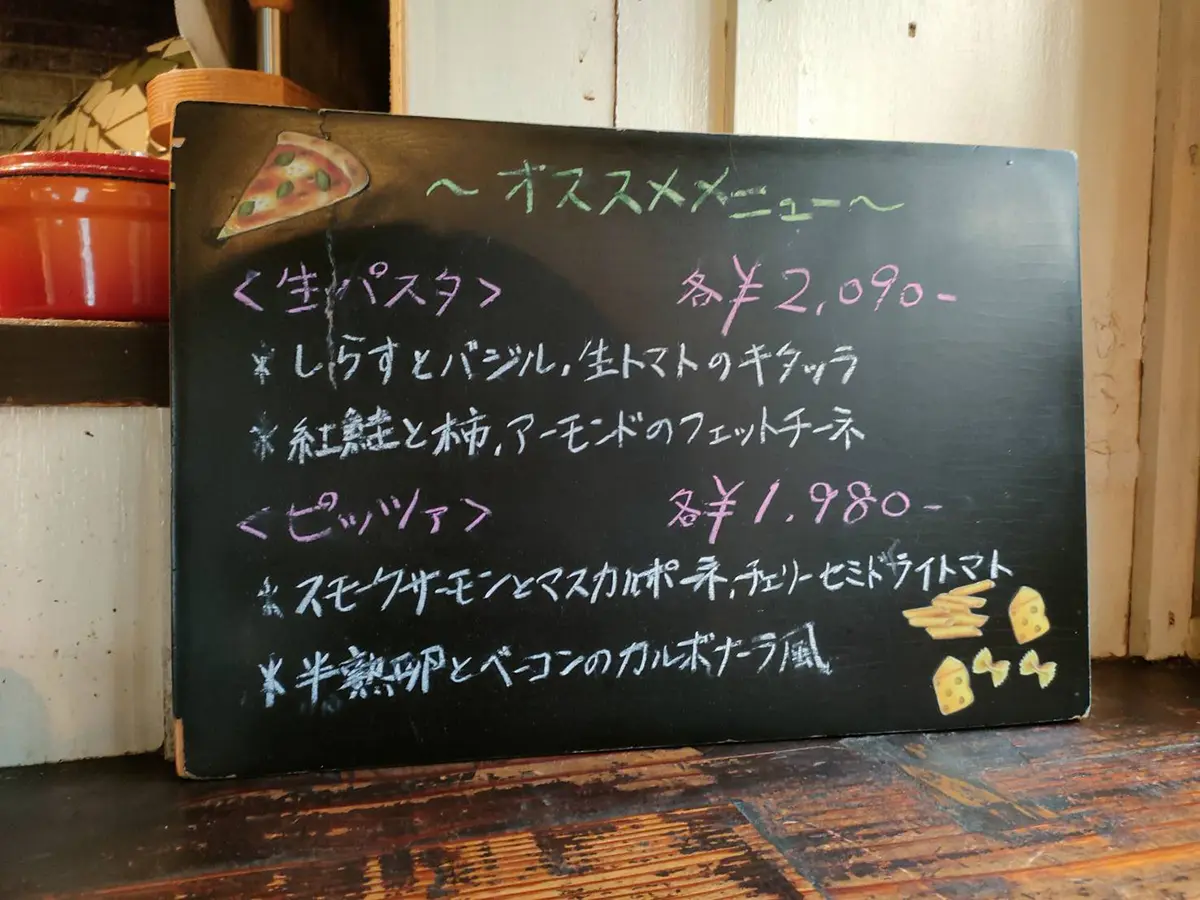 ～オススメメニュー～
<生パスタ> 各¥2,090-
*しらすとバジル,生トマトのキタッラ
*紅鮭と柿,アーモンドのフェットチーネ
<ピッツァ> 各¥1.980-
*スモークサーモンとマスカルポーネ,チェリーセミドライトマト
*半熟卵とベーコンのカルボナーラ風